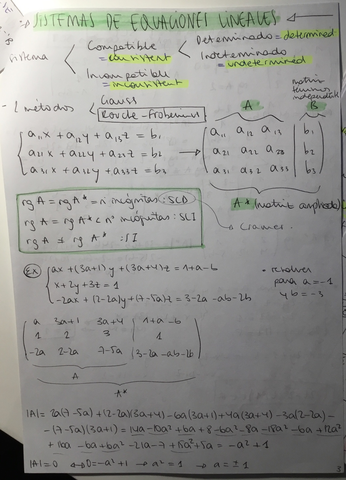 SISTEMAS DE EQUACIONES LINEALES
sistema
Compatible = consistent
Determinado = determined
Indeterminado = undetermined
Incompatible = inconsistent
2 métodos
Gauss
Rouché-Frobenius
A
B
a₁₁x + a₁₂y + a₁₃z = b₁
a₂₁x + a₂₂y + a₂₃z = b₂
a₃₁x + a₃₂y + a₃₃z = b₃
a₁₁ a₁₂ a₁₃ b₁
a₂₁ a₂₂ a₂₃ b₂
a₃₁ a₃₂ a₃₃ b₃
A* (matriz ampliada)
rg A = rg A* = nº incógnitas : SCD
rg A = rg A* < nº incógnitas : SCI
rg A ≠ rg A* : SI
Cramer
Ex
ax + (3a+1)y + (3a+4)z = 1+a-b
x + 2y + 3z = 1
-2ax + (2-2a)y + (7-5a)z = 3-2a-ab-2b
• resolver
para a = -1
y b = -3
a 3a+1 3a+4 1+a-b
1 2 3 1
-2a 2-2a 7-5a 3-2a-ab-2b
A
A*
|A| = 2a(7-5a) + (2-2a)(3a+4) - 6a(3a+1) + 4a(3a+4) - 3a(2-2a) -
- (7-5a)(3a+1) =
= -a² + 1
|A| = 0 ⇔ 0 = -a² + 1 → a² = 1 → a = ± 1